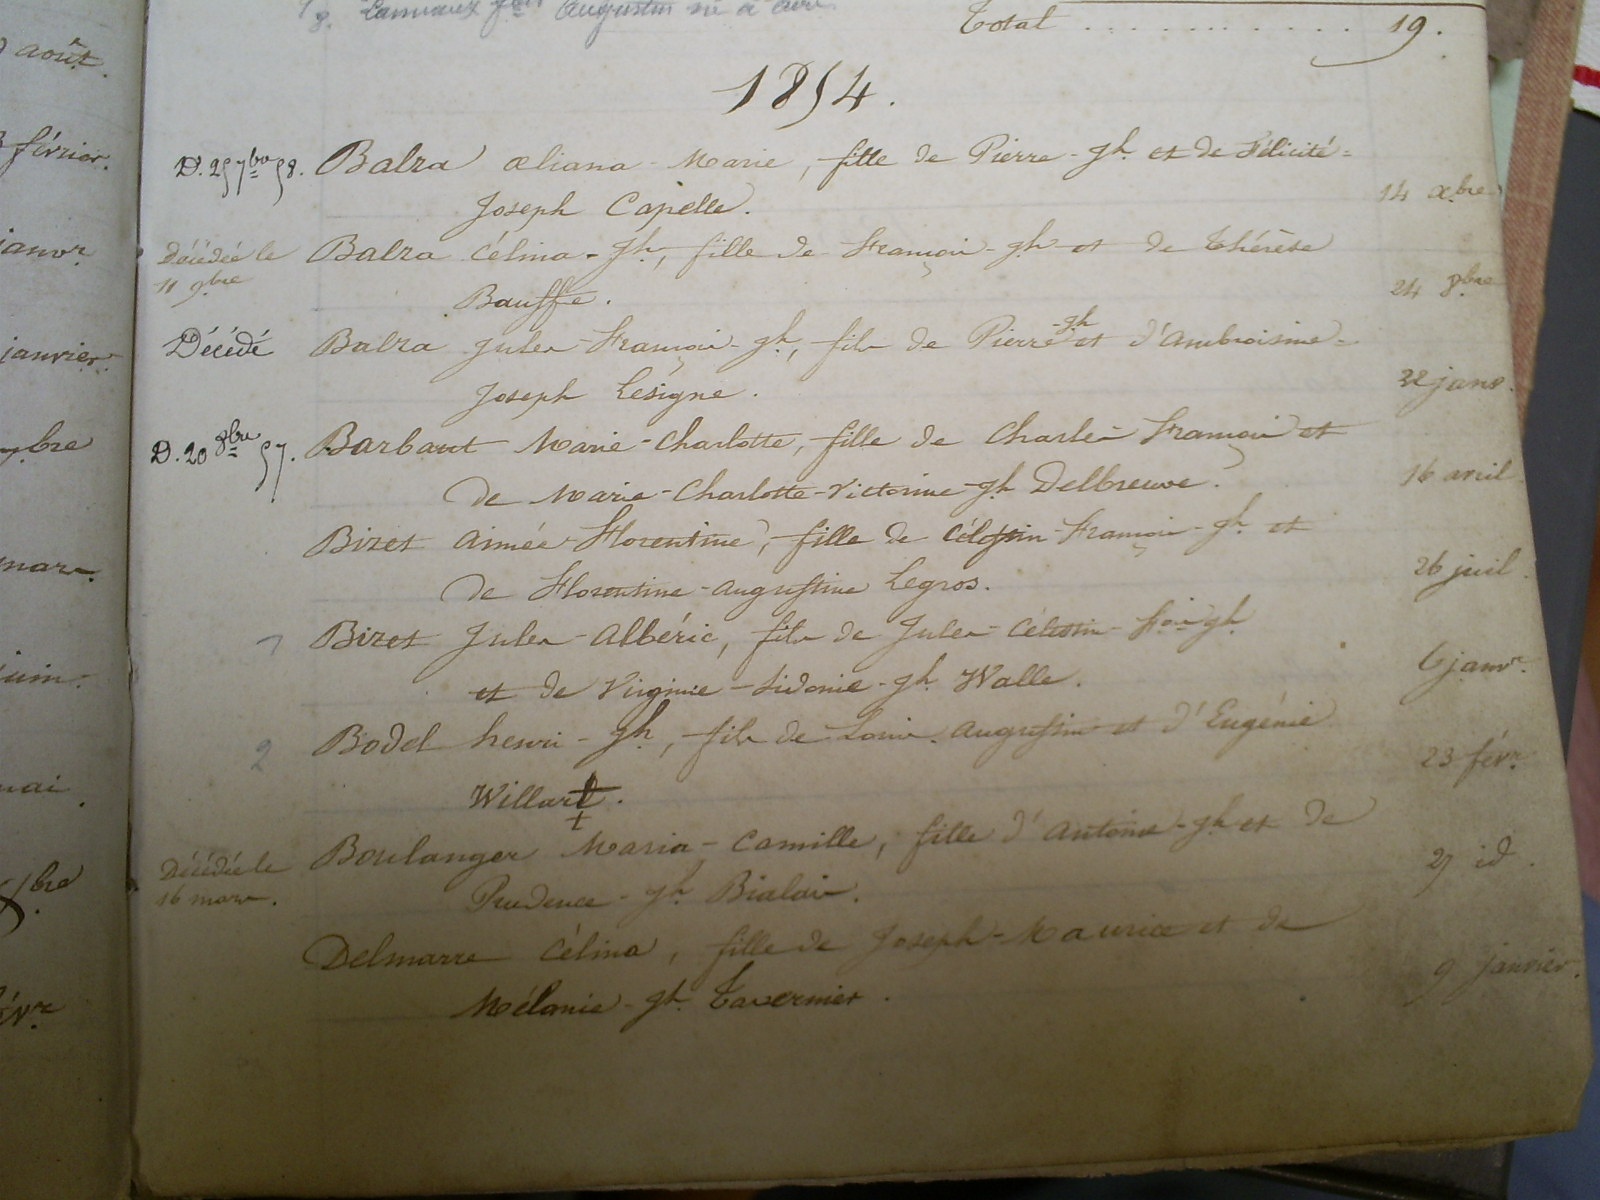 août.
février.
janvr
janvier.
bre
mars.
juin.
mai.
bre
févr
8. Lanviaux Augustin né à
Total . . . . . . . . . . . 19.
1854.
D. 25 7bre 58. Balza Æliana-Marie, fille de Pierre-gh. et de Félicité=
Joseph Capelle. 14 Xbre
Décédée le Balza Célina-gh, fille de François-gh et de Thérèse
11 9bre Bauffe. 24 8bre
Décédé Balza Jules-François-gh, fils de Pierre gh et d'Ambroisine=
Joseph Lésigne. 22 janv.
D. 20 8bre 57. Barbaut Marie-Charlotte, fille de Charles François et
de Marie-Charlotte-Victorine-gh Delbreuve. 16 avril
Bizet Aimée-Florentine, fille de Célestin-François-gh et
de Florentine-Augustine Legros. 26 juil.
1 Bizet Jules-Albéric, fils de Jules-Célestin-fçois gh
et de Virginie-Sidonie-gh Walle. 6 janvr.
2 Bodel henri-gh, fils de Louis Augustin et d'Eugénie
Willart. 23 févr
Décédée le Boulanger Maria-Camille, fille d'Antoine-gh et de
16 mars. Prudence-gh Bialais. 27 id.
Delmarre Célina, fille de Joseph-Maurice et de
Mélanie-gh Tavernier. 9 janvier.